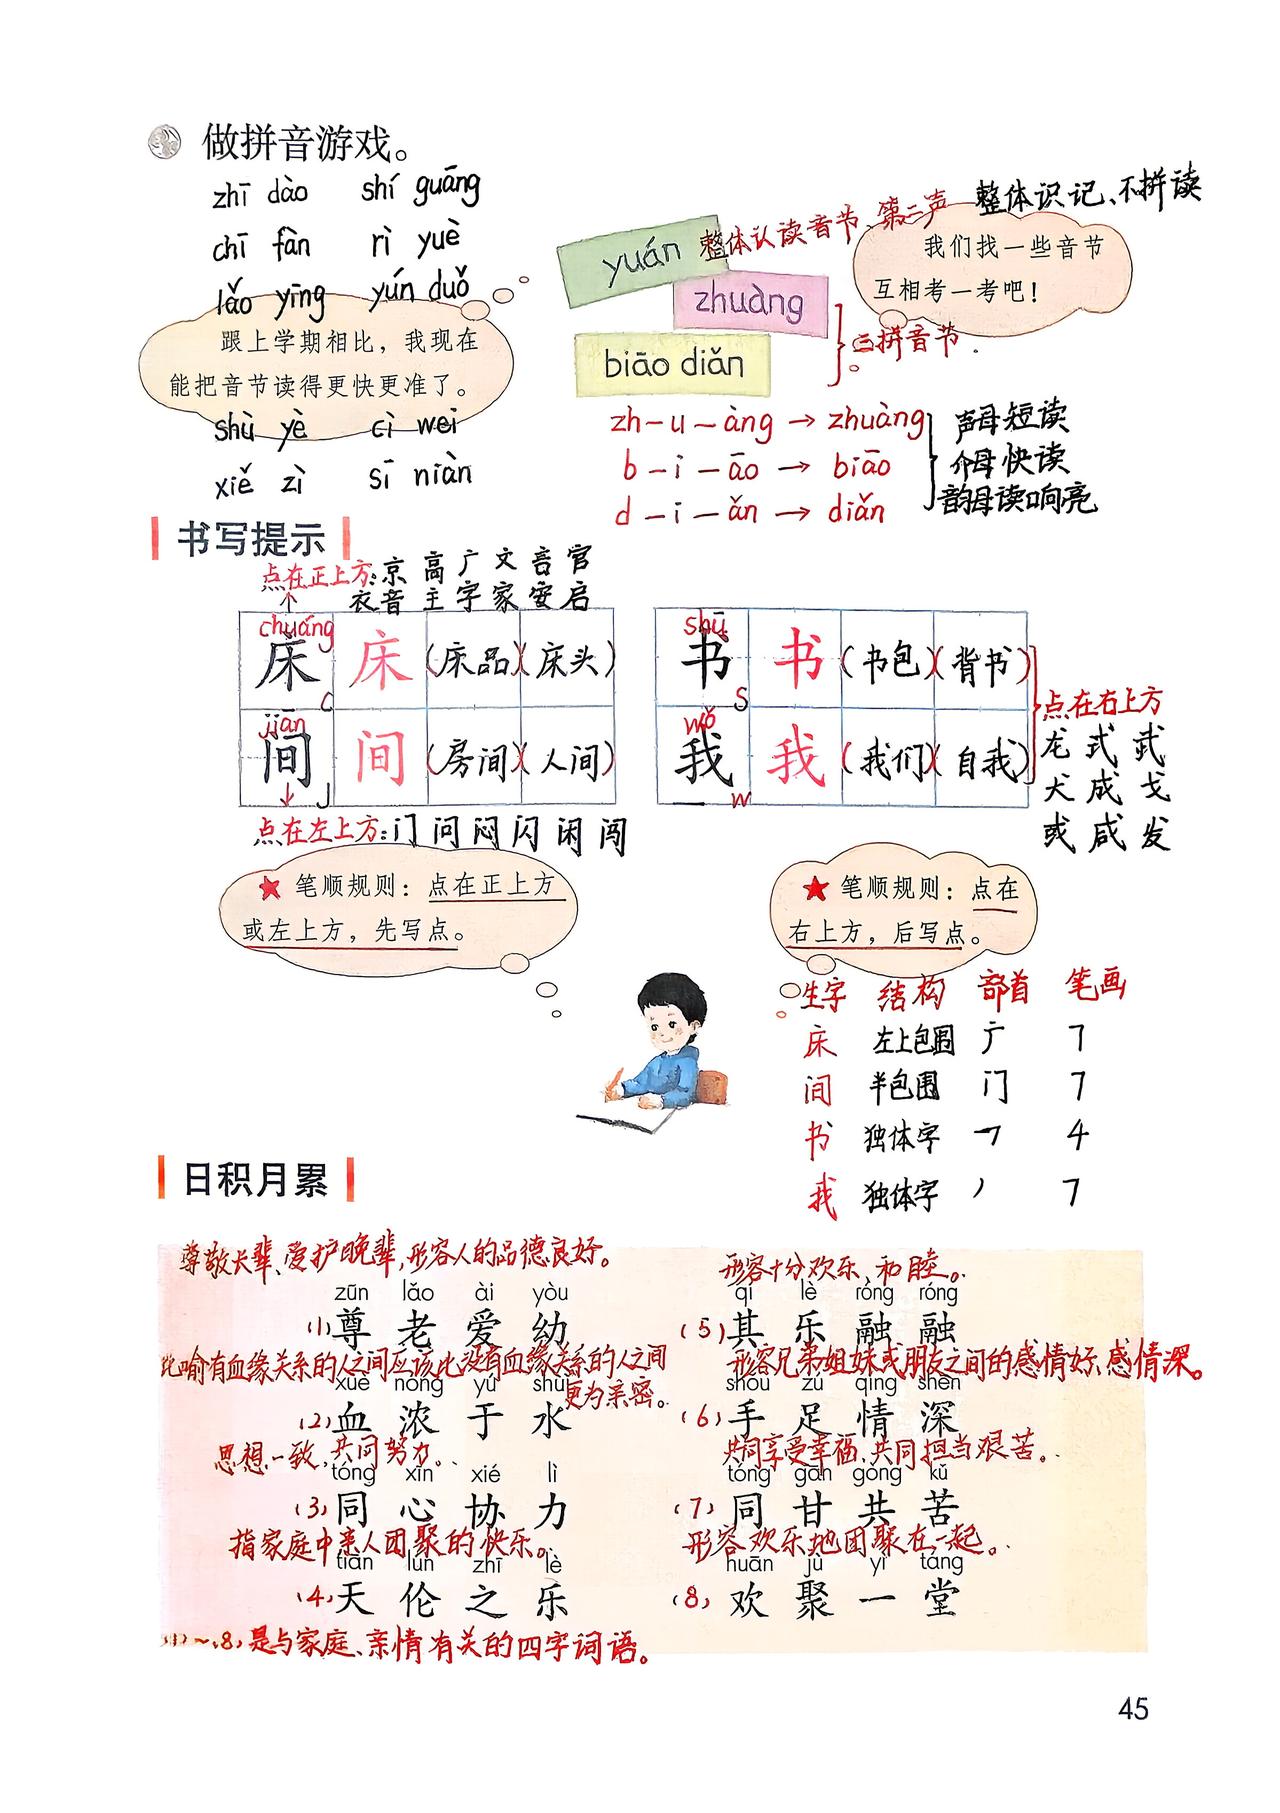 做拼音游戏。
zhī dào shí guāng
chī fàn rì yuè
lǎo yīng yún duǒ
跟上学期相比，我现在
能把音节读得更快更准了。
shù yè cì wei
xiě zì sī niàn
整体识记、不拼读
yuán 整体认读音节、第二声
zhuàng
biāo diǎn
三拼音节
我们找一些音节
互相考一考吧！
zh-u-àng→zhuàng
b-i-āo→biāo
d-i-ǎn→diǎn
声母短读
介母快读
韵母读响亮
书写提示
点在正上方：京 高 广 文 言 官
衣 音 主 字 家 安 启
chuáng
床 床 (床品)(床头)
C
jiān
间 间 (房间)(人间)
J
点在左上方：门 问 闷 闪 闲 闯
shū
书 书 (书包)(背书)
S
wǒ
我 我 (我们)(自我)
w
点在右上方
龙 式 武
犬 成 戈
或 咸 发
★笔顺规则：点在正上方
或左上方，先写点。
★笔顺规则：点在
右上方，后写点。
生字 结构 部首 笔画
床 左上包围 广 7
间 半包围 门 7
书 独体字 乛 4
我 独体字 丿 7
日积月累
尊敬长辈、爱护晚辈，形容人的品德良好。
zūn lǎo ài yòu
(1)尊老爱幼
比喻有血缘关系的人之间应该比没有血缘关系的人之间
更为亲密。
xuè nóng yú shuǐ
(2)血浓于水
思想一致，共同努力。
tóng xīn xié lì
(3)同心协力
指家庭中亲人团聚的快乐。
tiān lún zhī lè
(4)天伦之乐
形容十分欢乐，和睦。
qí lè róng róng
(5)其乐融融
形容兄弟姐妹或朋友之间的感情好、感情深。
shǒu zú qíng shēn
(6)手足情深
共同享受幸福，共同担当艰苦。
tóng gān gòng kǔ
(7)同甘共苦
形容欢乐地团聚在一起。
huān jù yì táng
(8)欢聚一堂
(1)~(8)是与家庭、亲情有关的四字词语。
45